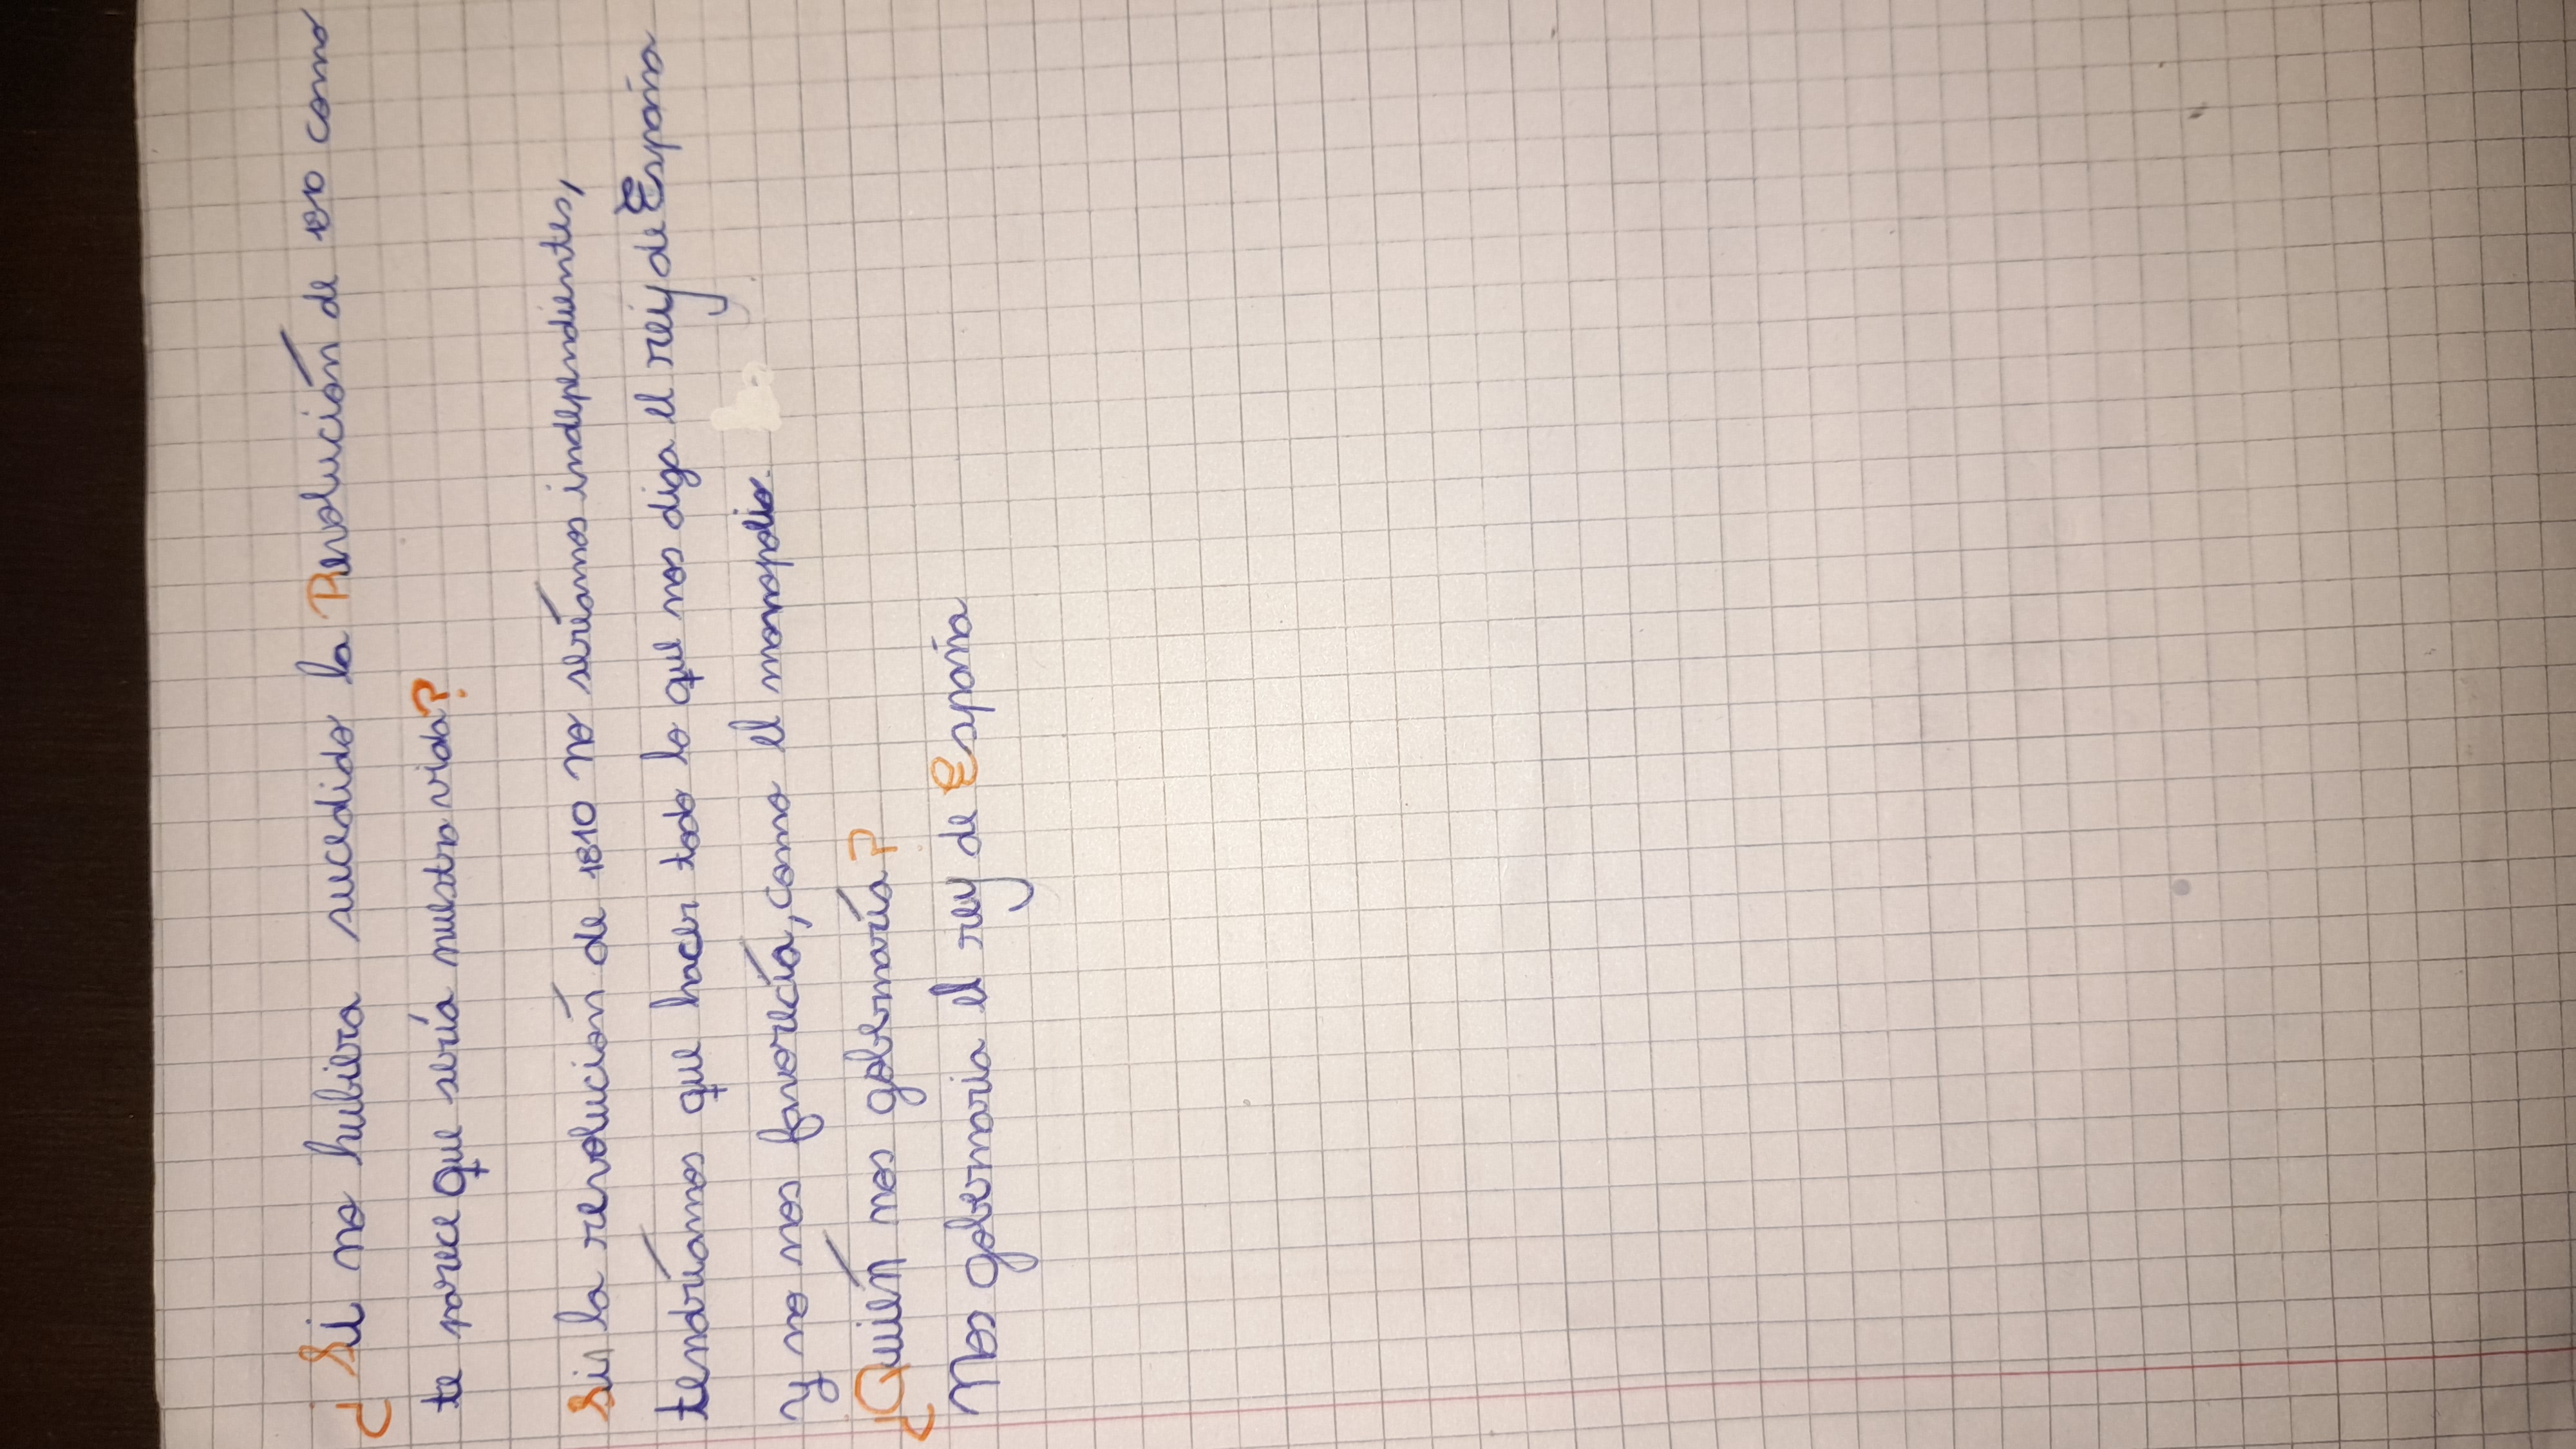 ¿Si no hubiera sucedido la Revolución de 1810 como
te parece que sería nuestra vida?
Sin la revolución de 1810 no seríamos independientes,
tendríamos que hacer todo lo que nos diga el rey de España
y no nos favorecía, como el monopolio.
¿Quién nos gobernaría?
Nos gobernaria el rey de España